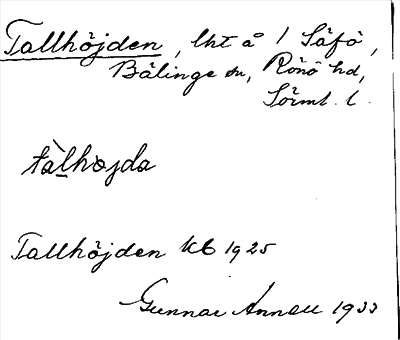 Tallhöjden, lht å 1 Säfö,
Bälinge sn, Rönö hd,
Sörml. l.
tàlhøjda
Tallhöjden Kb 1925
Gunnar Annell 1933